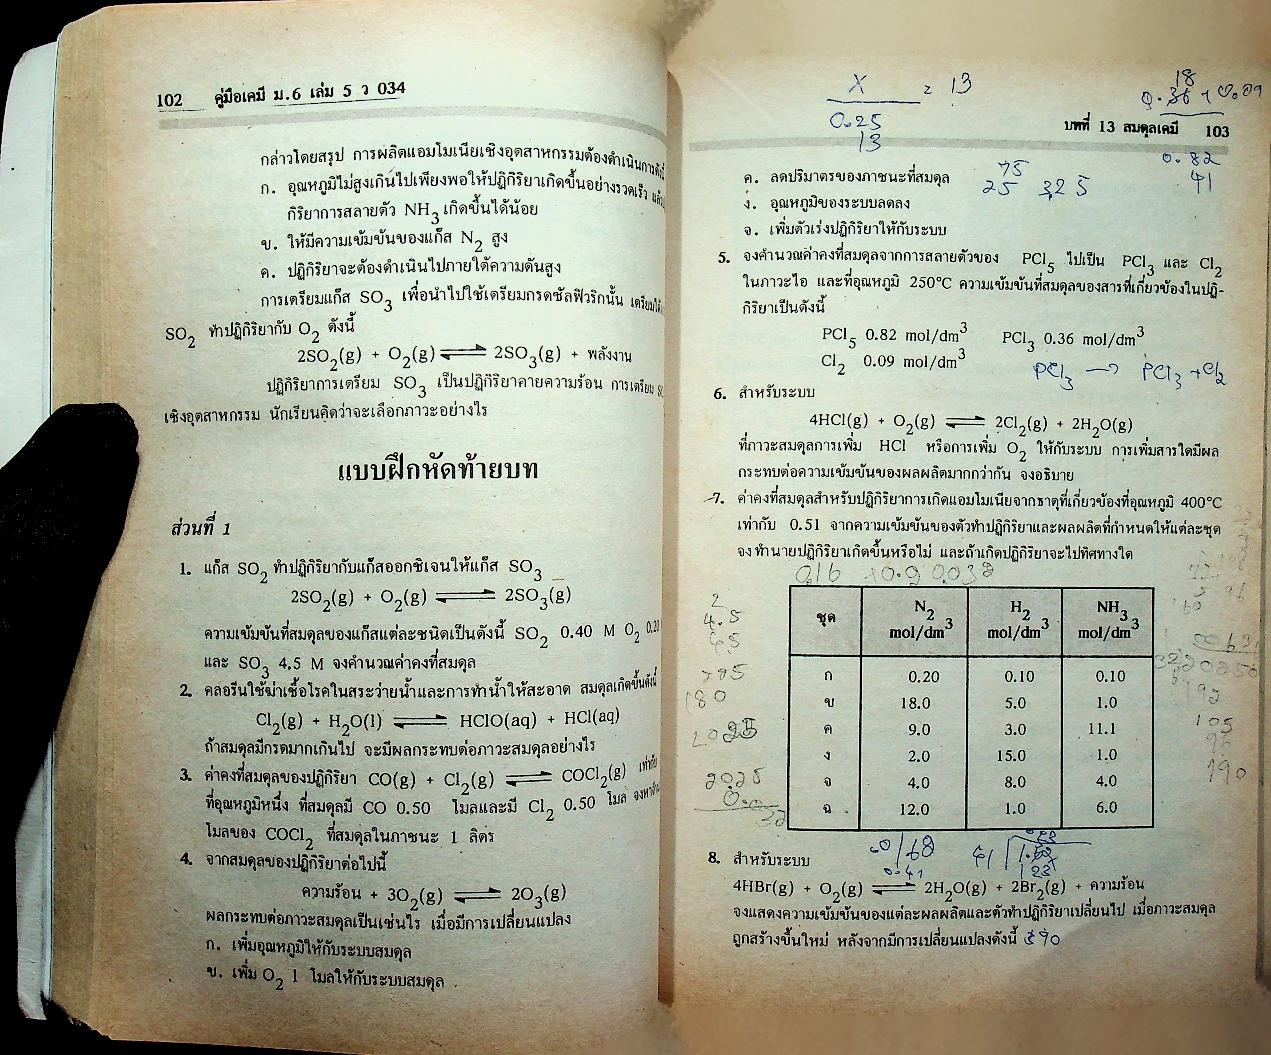 102 คู่มือเคมี ม.6 เล่ม 5 ว 034
กล่าวโดยสรุป การผลิตแอมโมเนียเชิงอุตสาหกรรมต้องดำเนินการดังนี้
ก. อุณหภูมิไม่สูงเกินไปเพียงพอให้ปฏิกิริยาเกิดขึ้นอย่างรวดเร็ว
กิริยาการสลายตัว NH3 เกิดขึ้นได้น้อย
ข. ให้มีความเข้มข้นของแก๊ส N2 สูง
ค. ปฏิกิริยาจะต้องดำเนินไปภายใต้ความดันสูง
การเตรียมแก๊ส SO3 เพื่อนำไปใช้เตรียมกรดซัลฟิวริกนั้น
SO2 ทำปฏิกิริยากับ O2 ดังนี้
2SO2(g) + O2(g) ⇌ 2SO3(g) + พลังงาน
ปฏิกิริยาการเตรียม SO3 เป็นปฏิกิริยาคายความร้อน การเตรียม
เชิงอุตสาหกรรม นักเรียนคิดว่าจะเลือกภาวะอย่างไร
แบบฝึกหัดท้ายบท
ส่วนที่ 1
1. แก๊ส SO2 ทำปฏิกิริยากับแก๊สออกซิเจนให้แก๊ส SO3
2SO2(g) + O2(g) ⇌ 2SO3(g)
ความเข้มข้นที่สมดุลของแก๊สแต่ละชนิดเป็นดังนี้ SO2 0.40 M O2
และ SO3 4.5 M จงคำนวณค่าคงที่สมดุล
2. คลอรีนใช้ฆ่าเชื้อโรคในสระว่ายน้ำและการทำน้ำให้สะอาด สมดุลเกิดขึ้นดังนี้
Cl2(g) + H2O(l) ⇌ HClO(aq) + HCl(aq)
ถ้าสมดุลมีกรดมากเกินไป จะมีผลกระทบต่อภาวะสมดุลอย่างไร
3. ค่าคงที่สมดุลของปฏิกิริยา CO(g) + Cl2(g) ⇌ COCl2(g)
ที่อุณหภูมิหนึ่ง ที่สมดุลมี CO 0.50 โมลและมี Cl2 0.50 โมล
โมลของ COCl2 ที่สมดุลในภาชนะ 1 ลิตร
4. จากสมดุลของปฏิกิริยาต่อไปนี้
ความร้อน + 3O2(g) ⇌ 2O3(g)
ผลกระทบต่อภาวะสมดุลเป็นเช่นไร เมื่อมีการเปลี่ยนแปลง
ก. เพิ่มอุณหภูมิให้กับระบบสมดุล
ข. เพิ่ม O2 1 โมลให้กับระบบสมดุล
X = 13
0.25
13
18
0.36 × 0.09
บทที่ 13 สมดุลเคมี 103
0.82
41
ค. ลดปริมาตรของภาชนะที่สมดุล
75
25 325
ง. อุณหภูมิของระบบลดลง
จ. เพิ่มตัวเร่งปฏิกิริยาให้กับระบบ
5. จงคำนวณค่าคงที่สมดุลจากการสลายตัวของ PCl5 ไปเป็น PCl3 และ Cl2
ในภาวะไอ และที่อุณหภูมิ 250°C ความเข้มข้นที่สมดุลของสารที่เกี่ยวข้องในปฏิ-
กิริยาเป็นดังนี้
PCl5 0.82 mol/dm3 PCl3 0.36 mol/dm3
Cl2 0.09 mol/dm3
PCl3 → PCl3 + Cl2
6. สำหรับระบบ
4HCl(g) + O2(g) ⇌ 2Cl2(g) + 2H2O(g)
ที่ภาวะสมดุลการเพิ่ม HCl หรือการเพิ่ม O2 ให้กับระบบ การเพิ่มสารใดมีผล
กระทบต่อความเข้มข้นของผลผลิตมากกว่ากัน จงอธิบาย
7. ค่าคงที่สมดุลสำหรับปฏิกิริยาการเกิดแอมโมเนียจากธาตุที่เกี่ยวข้องที่อุณหภูมิ 400°C
เท่ากับ 0.51 จากความเข้มข้นของตัวทำปฏิกิริยาและผลผลิตที่กำหนดให้แต่ละชุด
จงทำนายปฏิกิริยาเกิดขึ้นหรือไม่ และถ้าเกิดปฏิกิริยาจะไปทิศทางใด
ชุด N2 mol/dm3 H2 mol/dm3 NH3 mol/dm3
ก 0.20 0.10 0.10
ข 18.0 5.0 1.0
ค 9.0 3.0 11.1
ง 2.0 15.0 1.0
จ 4.0 8.0 4.0
ฉ 12.0 1.0 6.0
8. สำหรับระบบ
4HBr(g) + O2(g) ⇌ 2H2O(g) + 2Br2(g) + ความร้อน
จงแสดงความเข้มข้นของแต่ละผลผลิตและตัวทำปฏิกิริยาเปลี่ยนไป เมื่อภาวะสมดุล
ถูกสร้างขึ้นใหม่ หลังจากมีการเปลี่ยนแปลงดังนี้